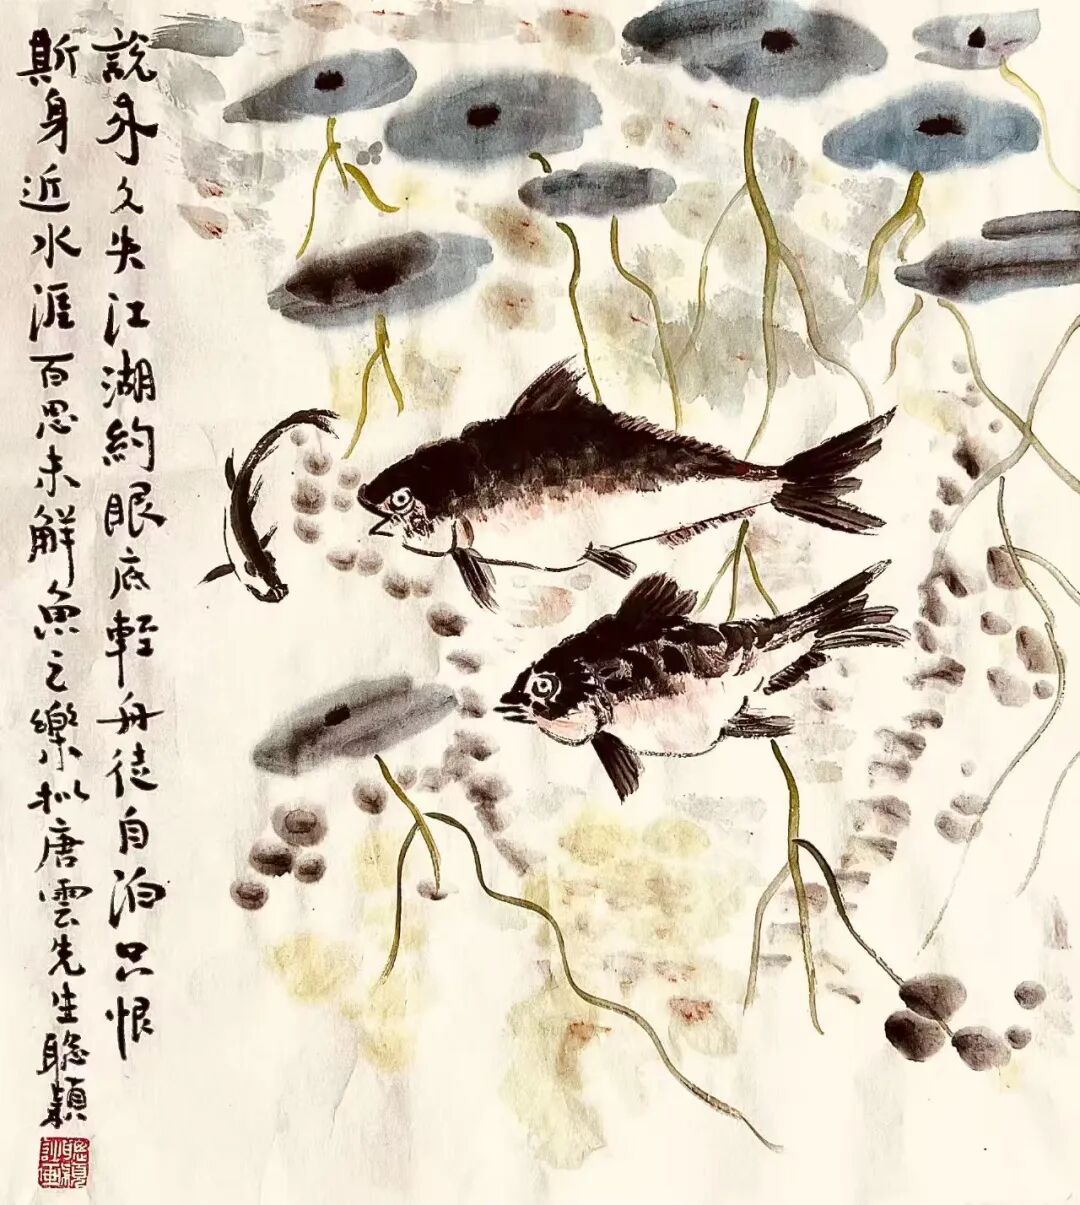 說来久失江湖約眼底輕舟徒自泊只恨
斯身近水涯百思未解魚之樂拟唐雲先生聰穎